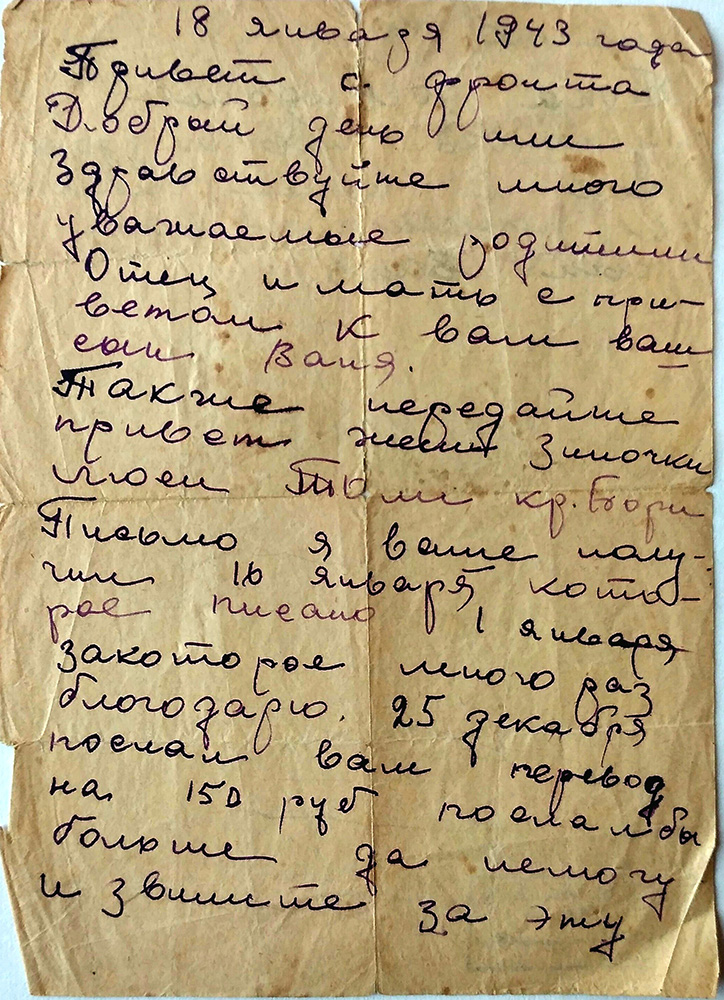 18 января 1943 года
Привет с фронта
Добрай день или
Здравствуйте много
уважаемые родители
Отец и мать с при-
ветом к вам ваш
сын Ваня.
Также передайте
привет жене Зиночки
Люси Томи кр. Егори
Письмо я ваше полу-
чил 16 января кото-
рое писано 1 января
закоторое много раз
благодарю. 25 декабря
послал вам перевод
на 150 руб послал бы
больше да немогу
и звините за эту